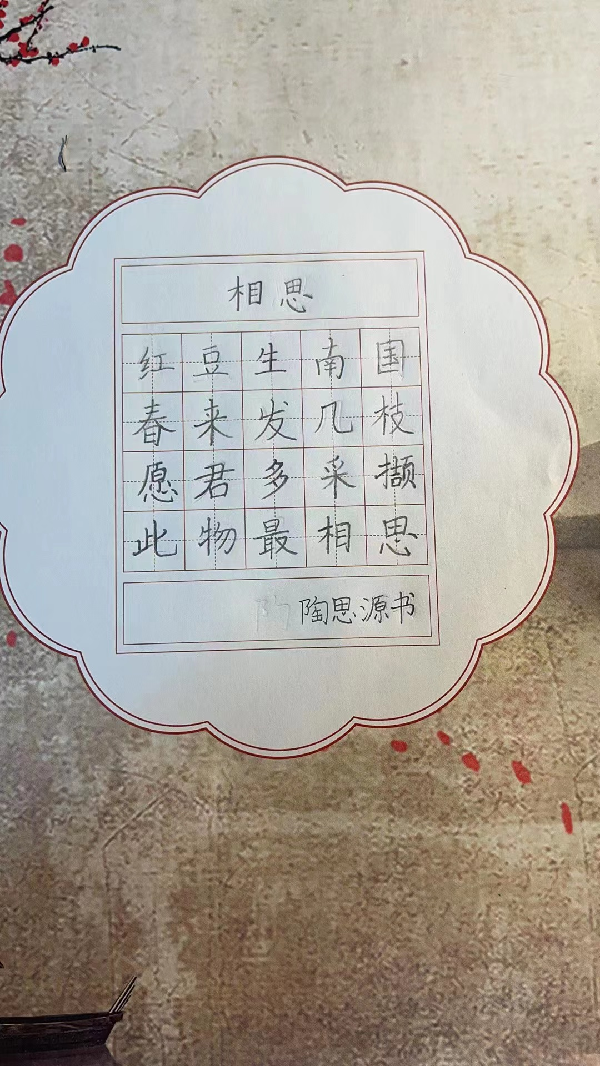 相思
红豆生南国
春来发几枝
愿君多采撷
此物最相思
陶思源书